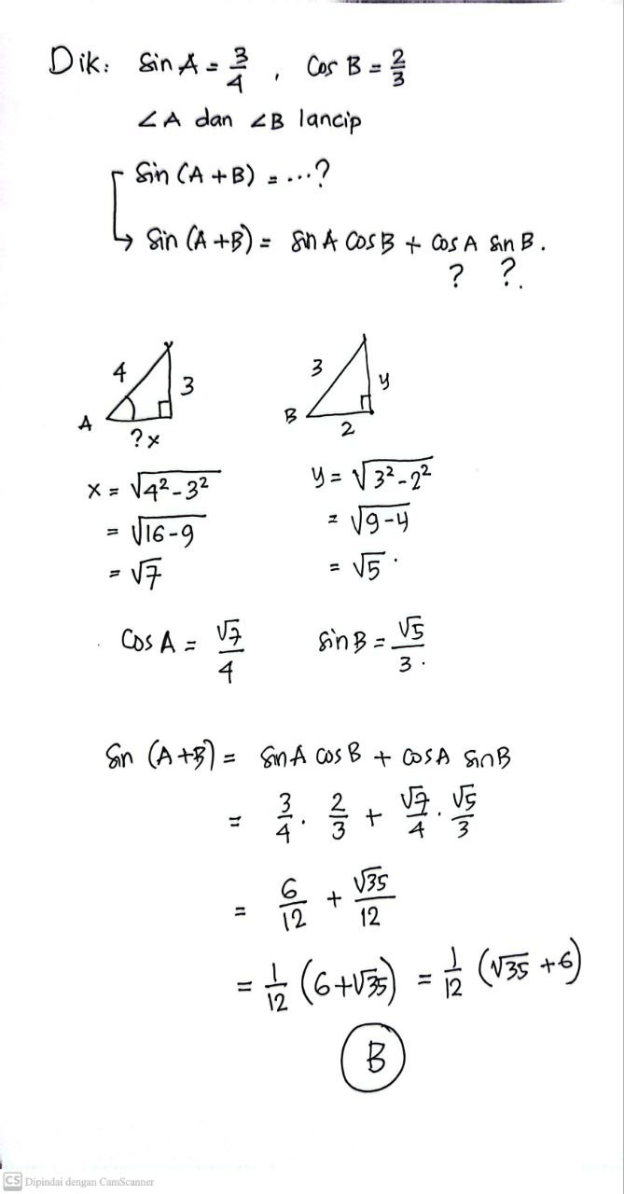 Dik: Sin A = 3/4 , Cos B = 2/3
∠A dan ∠B lancip
Sin (A + B) = ...?
↳ Sin (A+B) = Sin A Cos B + Cos A Sin B.
? ?.
4 3 A ?x
3 y B 2
x = √(4² - 3²)
= √(16 - 9)
= √7
y = √(3² - 2²)
= √(9 - 4)
= √5 .
. Cos A = √7/4
Sin B = √5/3 .
Sin (A+B) = Sin A Cos B + Cos A Sin B
= 3/4 . 2/3 + √7/4 . √5/3
= 6/12 + √35/12
= 1/12 (6+√35) = 1/12 (√35 + 6)
B
CS Dipindai dengan CamScanner